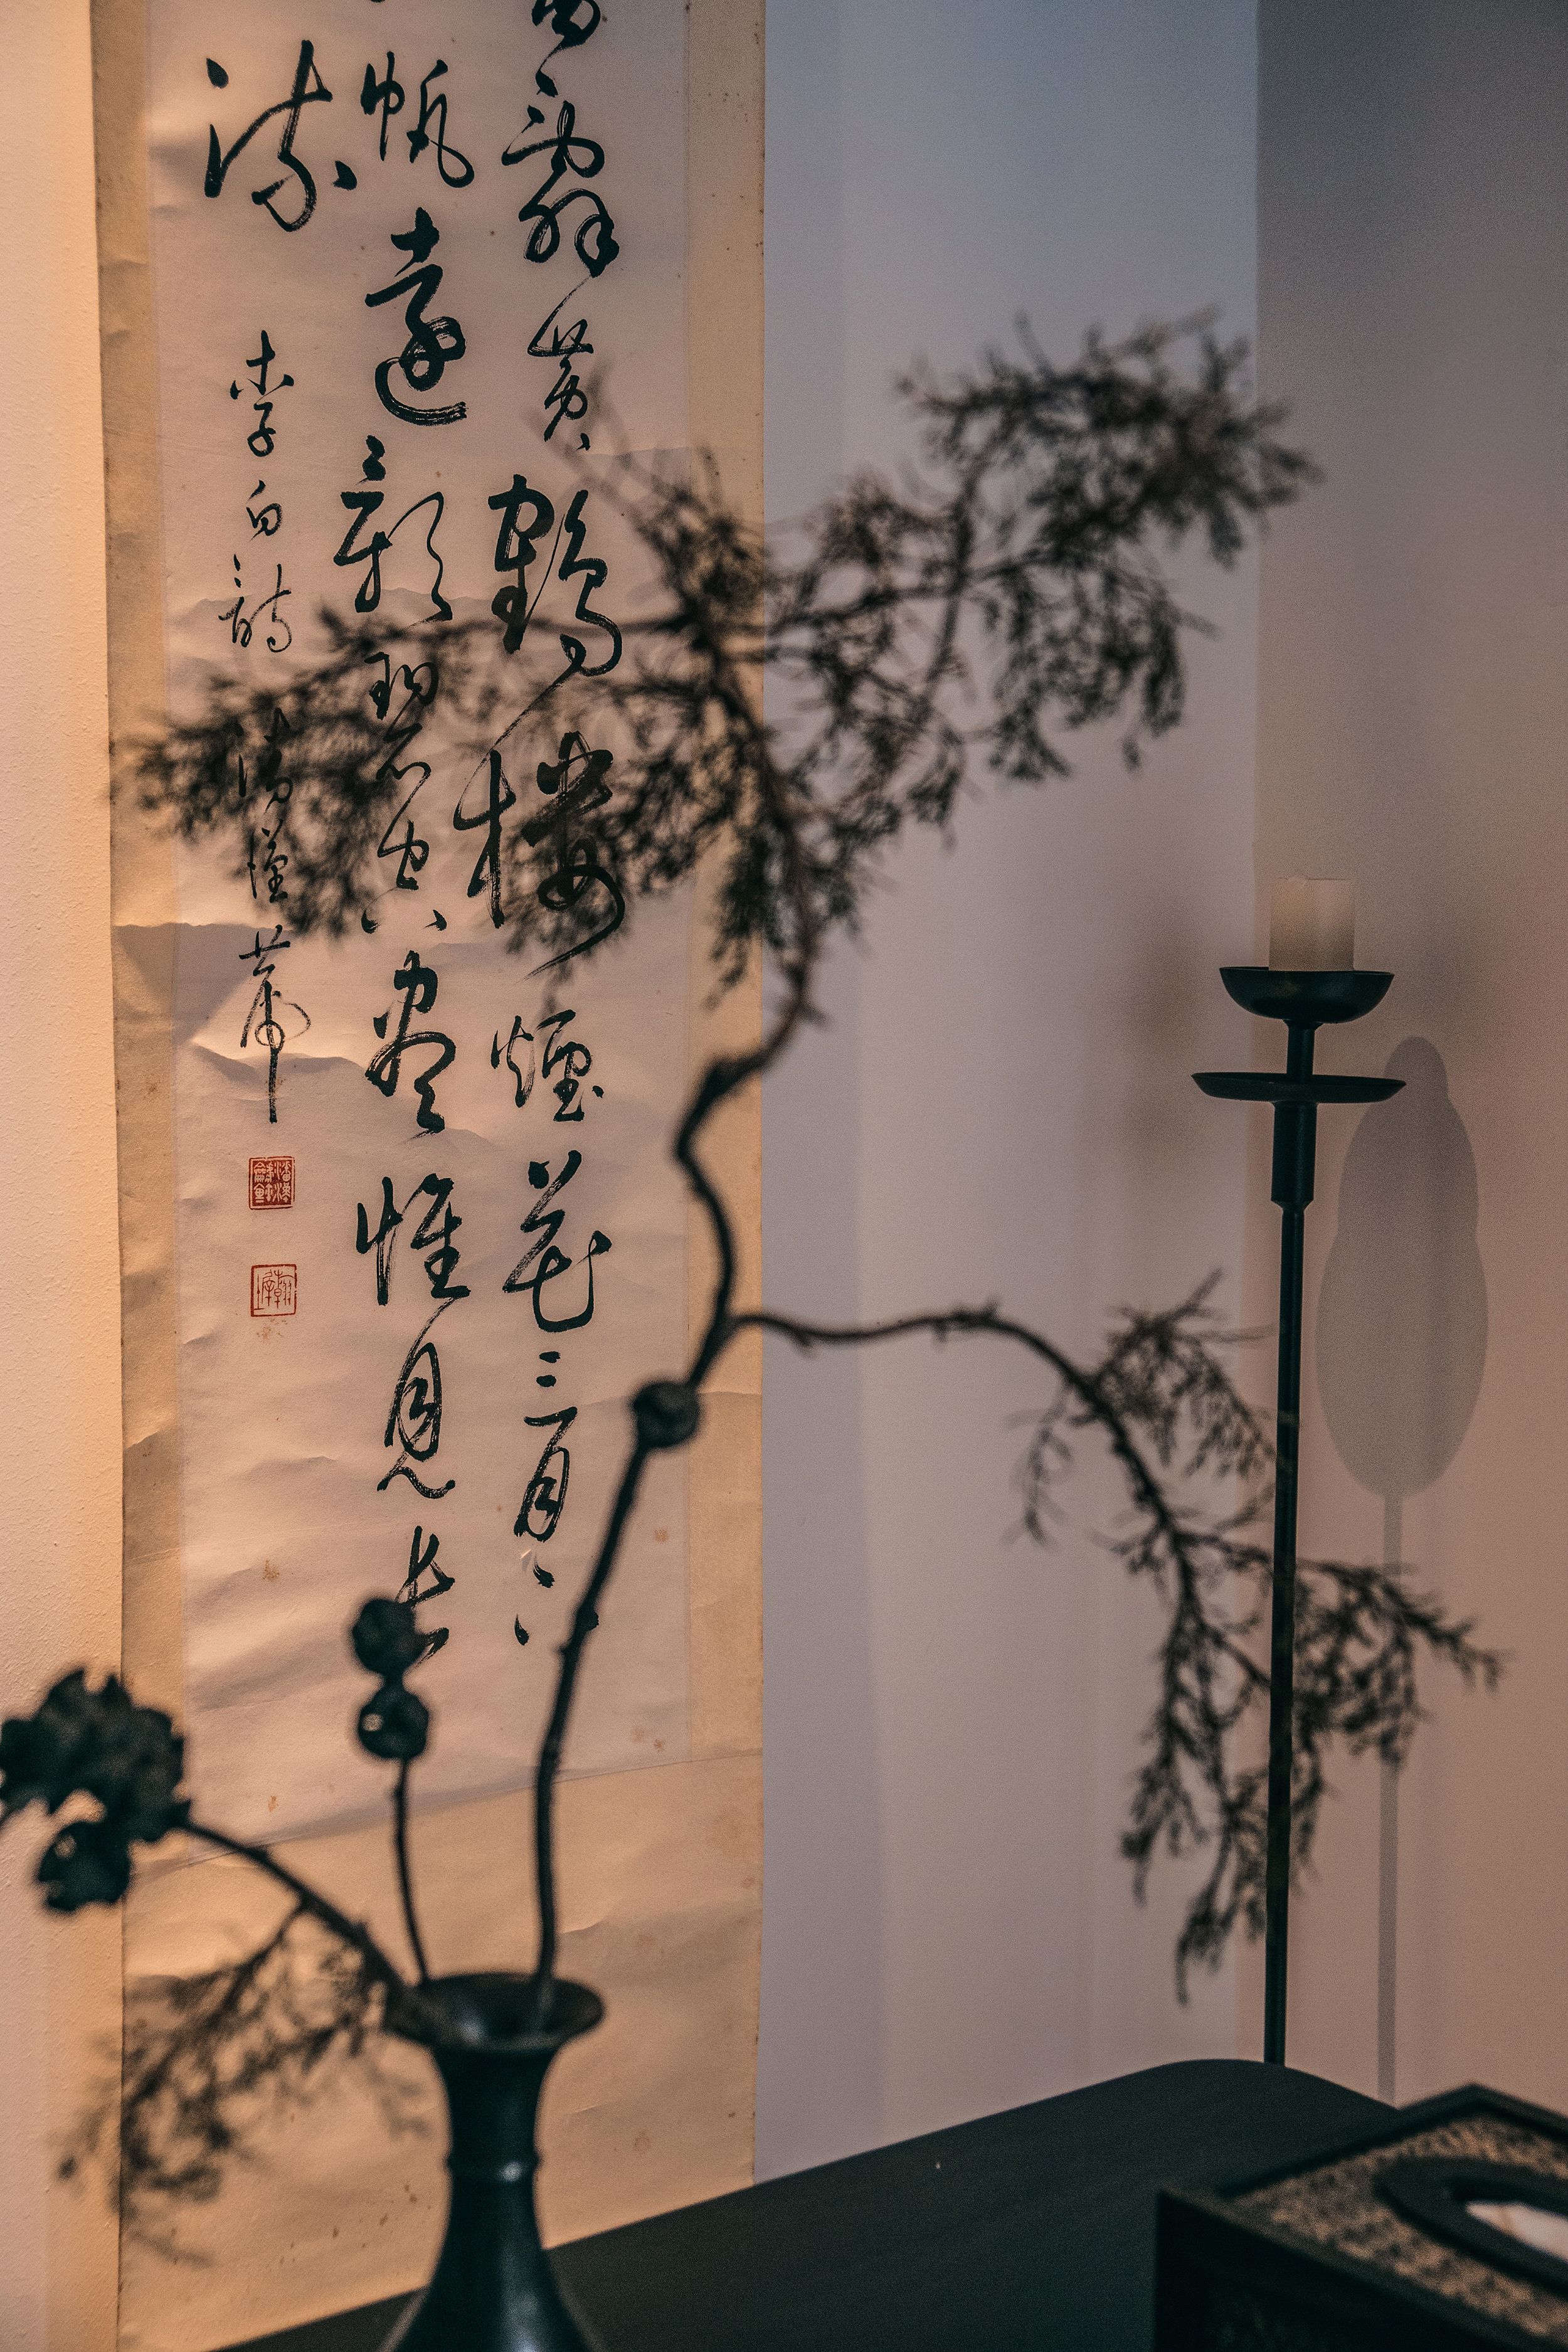 西辭黃鶴樓煙花三月下
帆遠影碧空盡惟見長
流
李白詩